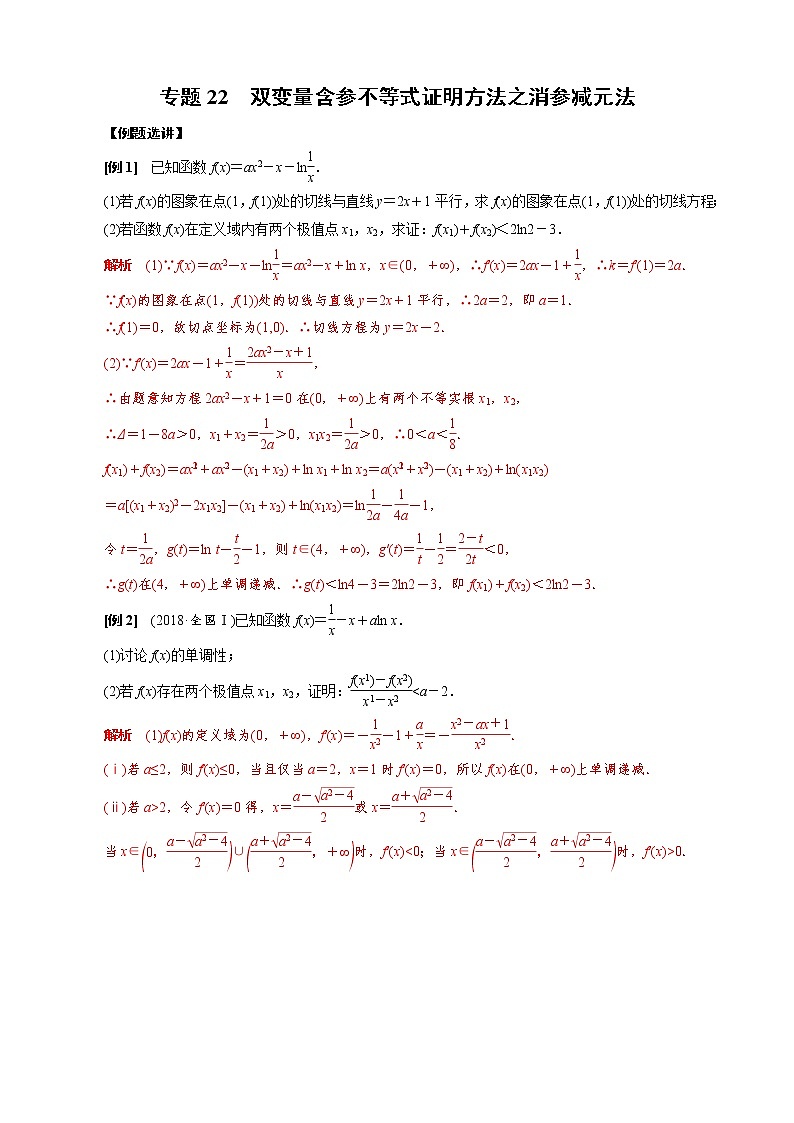 专题 22 双变量含参不等式证明方法之消参减元法
【例题选讲】
[例 1] 已知函数 f(x)＝ax²－x－ln\frac{1}{x}．
(1)若 f(x)的图象在点(1，f(1))处的切线与直线 y＝2x＋1 平行，求 f(x)的图象在点(1，f(1))处的切线方程；
(2)若函数 f(x)在定义域内有两个极值点 x₁，x₂，求证：f(x₁)＋f(x₂)＜2ln2－3．
解析 (1)∵f(x)＝ax²－x－ln\frac{1}{x}＝ax²－x＋ln x，x∈(0，＋∞)，∴f′(x)＝2ax－1＋\frac{1}{x}，∴k＝f′(1)＝2a．
∵f(x)的图象在点(1，f(1))处的切线与直线 y＝2x＋1 平行，∴2a＝2，即 a＝1．
∴f(1)＝0，故切点坐标为(1,0)．∴切线方程为 y＝2x－2．
(2)∵f′(x)＝2ax－1＋\frac{1}{x}＝\frac{2ax²－x＋1}{x}，
∴由题意知方程 2ax²－x＋1＝0 在(0，＋∞)上有两个不等实根 x₁，x₂，
∴Δ＝1－8a＞0，x₁＋x₂＝\frac{1}{2a}＞0，x₁x₂＝\frac{1}{2a}＞0，∴0＜a＜\frac{1}{8}．
f(x₁)＋f(x₂)＝ax²＋ax²－(x₁＋x₂)＋ln x₁＋ln x₂＝a(x²＋x²)－(x₁＋x₂)＋ln(x₁x₂)
＝a[(x₁＋x₂)²－2x₁x₂]－(x₁＋x₂)＋ln(x₁x₂)＝ln\frac{1}{2a}－\frac{1}{4a}－1，
令 t＝\frac{1}{2a}，g(t)＝ln t－\frac{t}{2}－1，则 t∈(4，＋∞)，g′(t)＝\frac{1}{t}－\frac{1}{2}＝\frac{2－t}{2t}＜0，
∴g(t)在(4，＋∞)上单调递减．∴g(t)＜ln4－3＝2ln2－3，即 f(x₁)＋f(x₂)＜2ln2－3．
[例 2] (2018·全国Ⅰ)已知函数 f(x)＝\frac{1}{x}－x＋aln x．
(1)讨论 f(x)的单调性；
(2)若 f(x)存在两个极值点 x₁，x₂，证明：\frac{f(x¹)－f(x²)}{x¹－x²}<a－2．
解析 (1)f(x)的定义域为(0，＋∞)，f′(x)＝－\frac{1}{x²}－1＋\frac{a}{x}＝－\frac{x²－ax＋1}{x²}．
(ⅰ)若 a≤2，则 f′(x)≤0，当且仅当 a＝2，x＝1 时 f′(x)＝0，所以 f(x)在(0，＋∞)上单调递减．
(ⅱ)若 a>2，令 f′(x)＝0 得，x＝\frac{a－\sqrt{a²－4}}{2}或 x＝\frac{a＋\sqrt{a²－4}}{2}．
当 x∈(0，\frac{a－\sqrt{a²－4}}{2})∪(\frac{a＋\sqrt{a²－4}}{2}，＋∞)时，f′(x)<0；当 x∈(\frac{a－\sqrt{a²－4}}{2}，\frac{a＋\sqrt{a²－4}}{2})时，f′(x)>0．